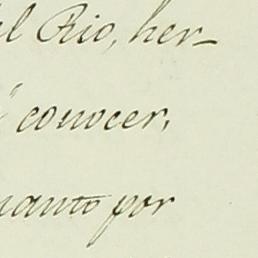 el Rio, her-
conocer,
uanto por